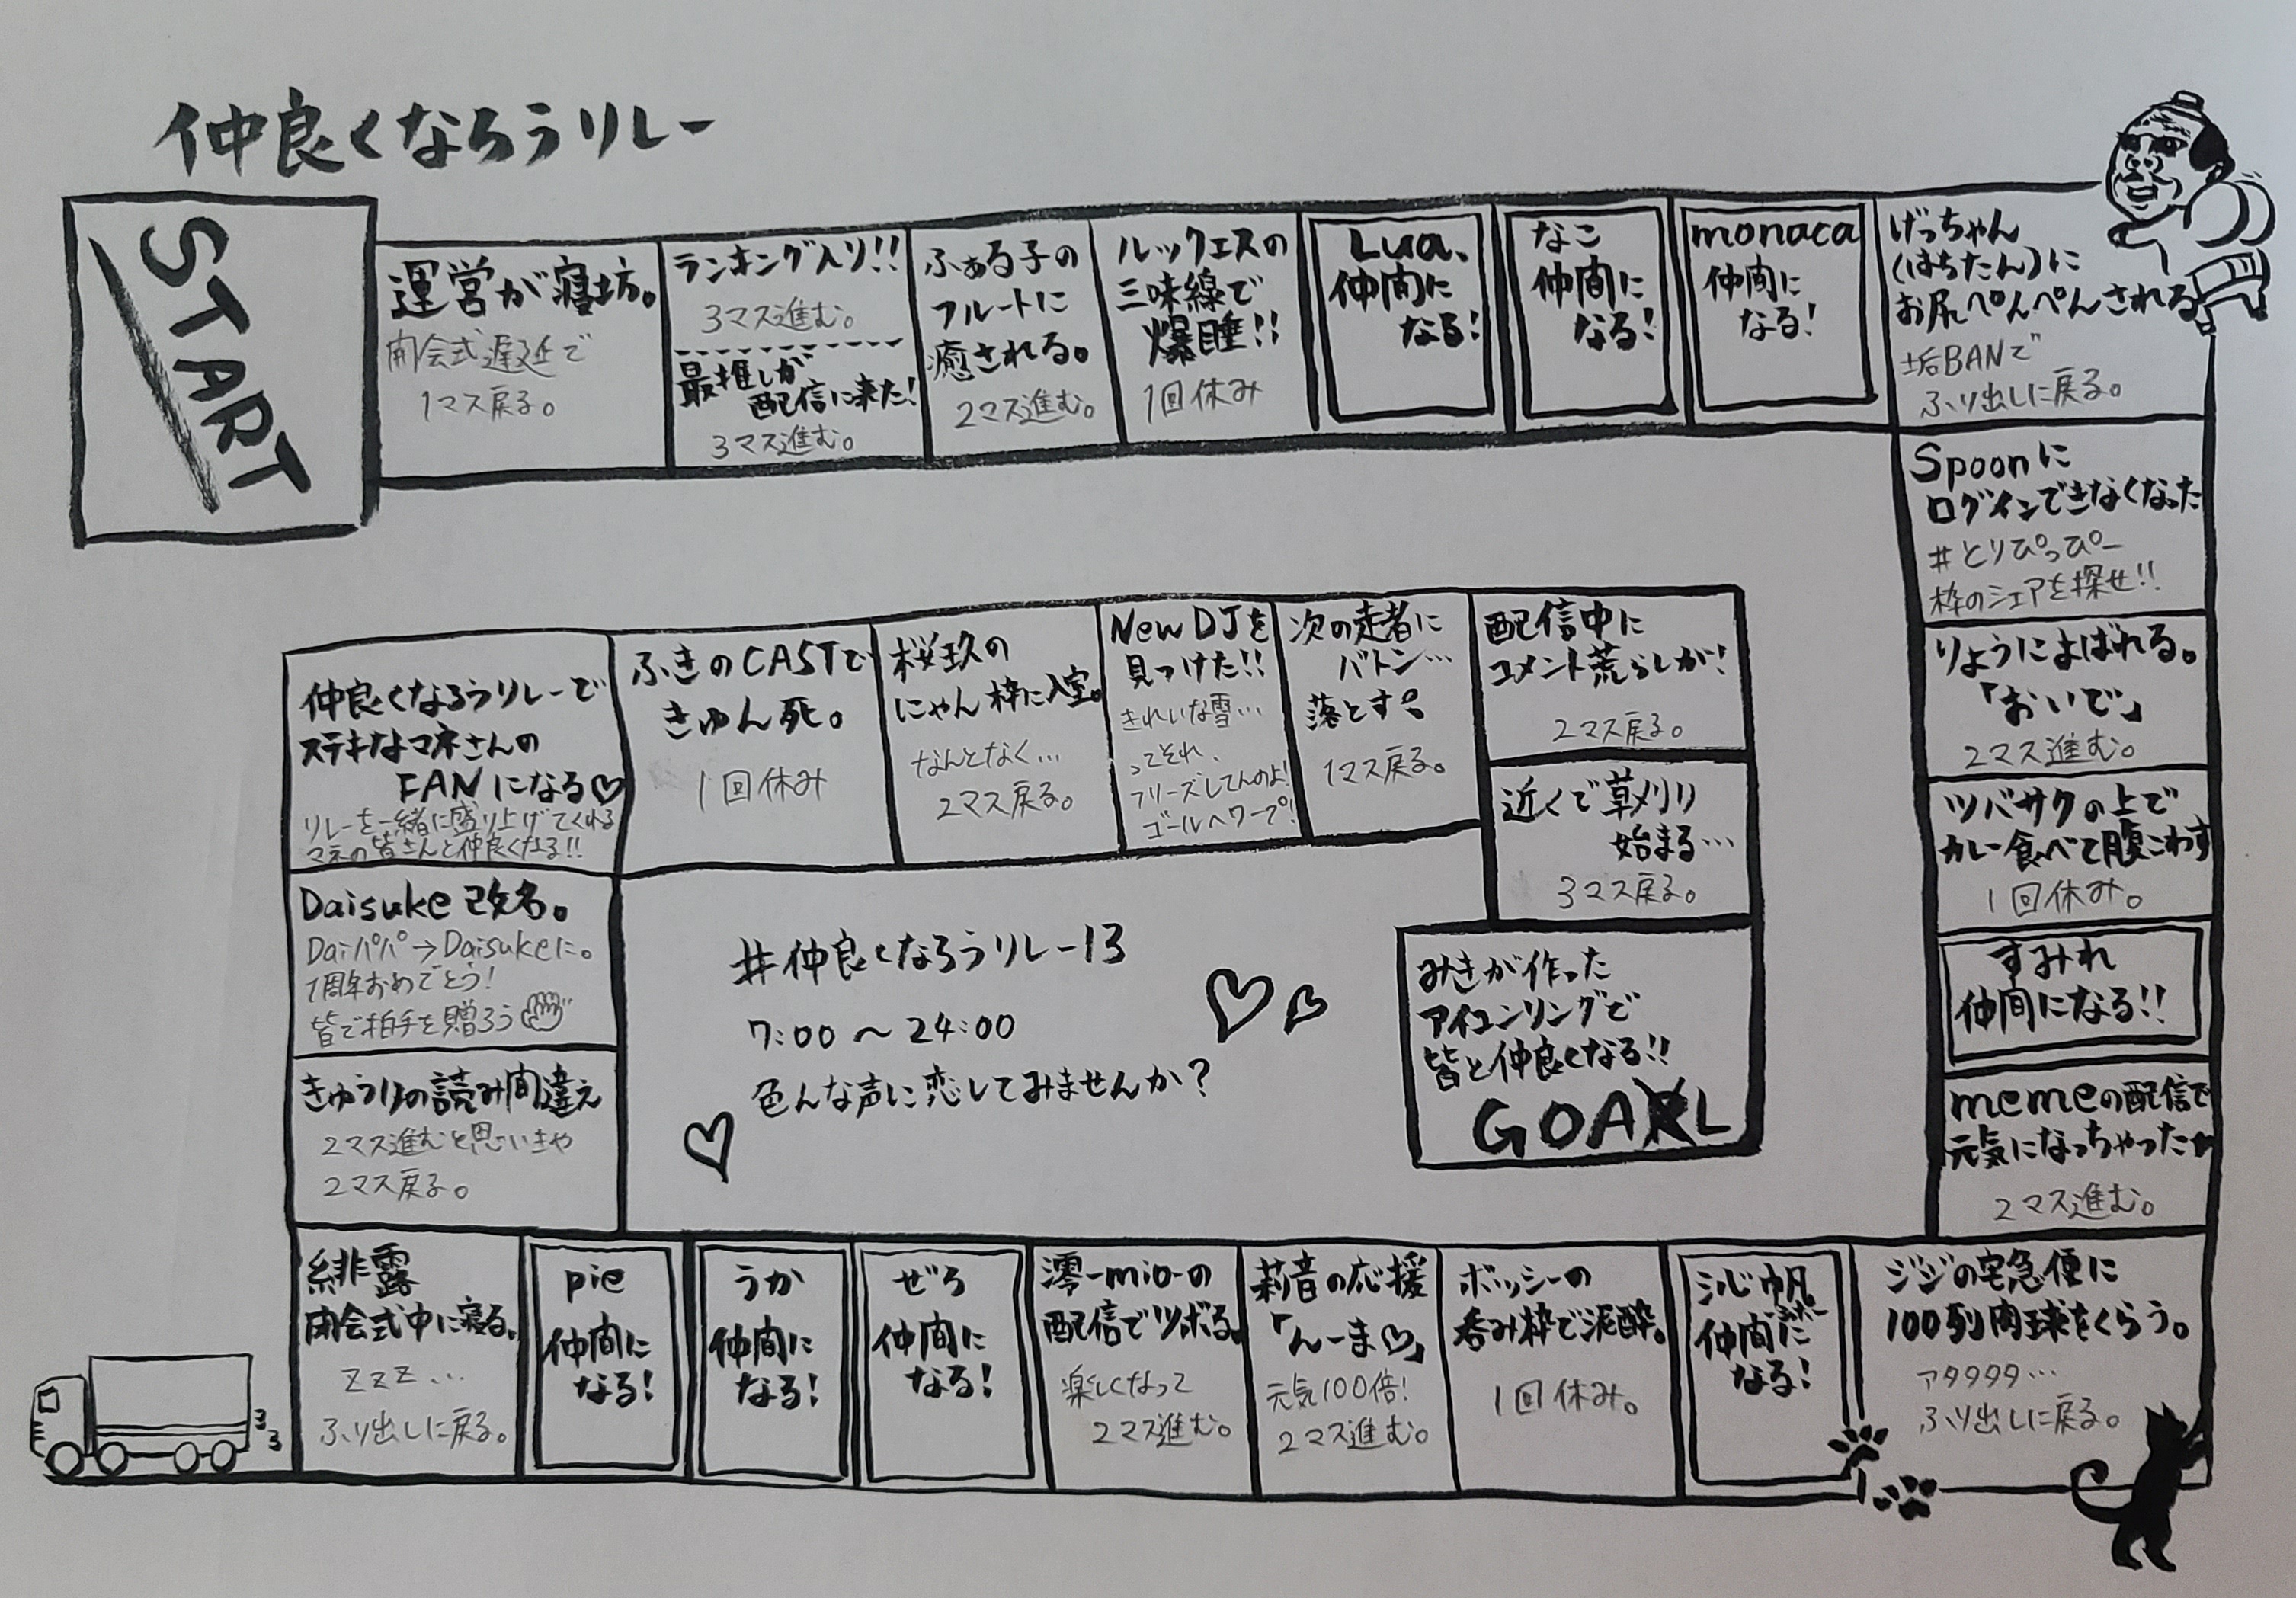 仲良くなろうリレー
START
運営が寝坊。
開会式遅延で
1マス戻る。
ランキング入り!!
3マス進む。
最推しが
配信に来た!
3マス進む。
ふぁる子の
フルートに
癒される。
2マス進む。
ルックェスの
三味線で
爆睡!!
1回休み
Lua、
仲間に
なる!
なこ
仲間に
なる!
monaca
仲間に
なる!
げっちゃん
(はちたん)に
お尻ぺんぺんされる
垢BANで
ふり出しに戻る。
Spoonに
ログインできなくなった
#とりぴっぴー
枠のシェアを探せ!!
りょうによばれる。
「おいで」
2マス進む。
ツバサクの上で
カレー食べて腹こわす
1回休み。
すみれ
仲間になる!!
memeの配信で
元気になっちゃった
2マス進む。
ジジの宅急便に
100列肉球をくらう。
アタタタタ…
ふり出しに戻る。
仲間に
なる!
ボッシーの
呑み枠で泥酔。
1回休み。
莉音の応援
「んーま♡」
元気100倍!
2マス進む。
澪-mio-の
配信でツボる。
楽しくなって
2マス進む。
ぜろ
仲間に
なる!
うか
仲間に
なる!
pie
仲間に
なる!
緋露
閉会式中に寝る。
zzz…
ふり出しに戻る。
きゅうりの読み間違え
2マス進むと思いきや
2マス戻る。
Daisuke改名。
Daiパパ→Daisukeに。
1周年おめでとう!
皆で拍手を贈ろう
仲良くなろうリレーで
ステキなマネさんの
FANになる♡
リレーを一緒に盛り上げてくれる
マネの皆さんと仲良くなる!!
ふきのCASTで
きゅん死。
1回休み
桜玖の
にゃん枠に入室。
なんとなく…
2マス戻る。
New DJを
見つけた!!
きれいな雪…
ってそれ、
フリーズしてんのよ!
ゴールへワープ!
次の走者に
バトン…
落とす。
1マス戻る。
配信中に
コメント荒らしが!
2マス戻る。
近くで草刈り
始まる…
3マス戻る。
みきが作った
アイコンリングで
皆と仲良くなる!!
GOAL
#仲良くなろうリレー13
7:00～24:00
色んな声に恋してみませんか?